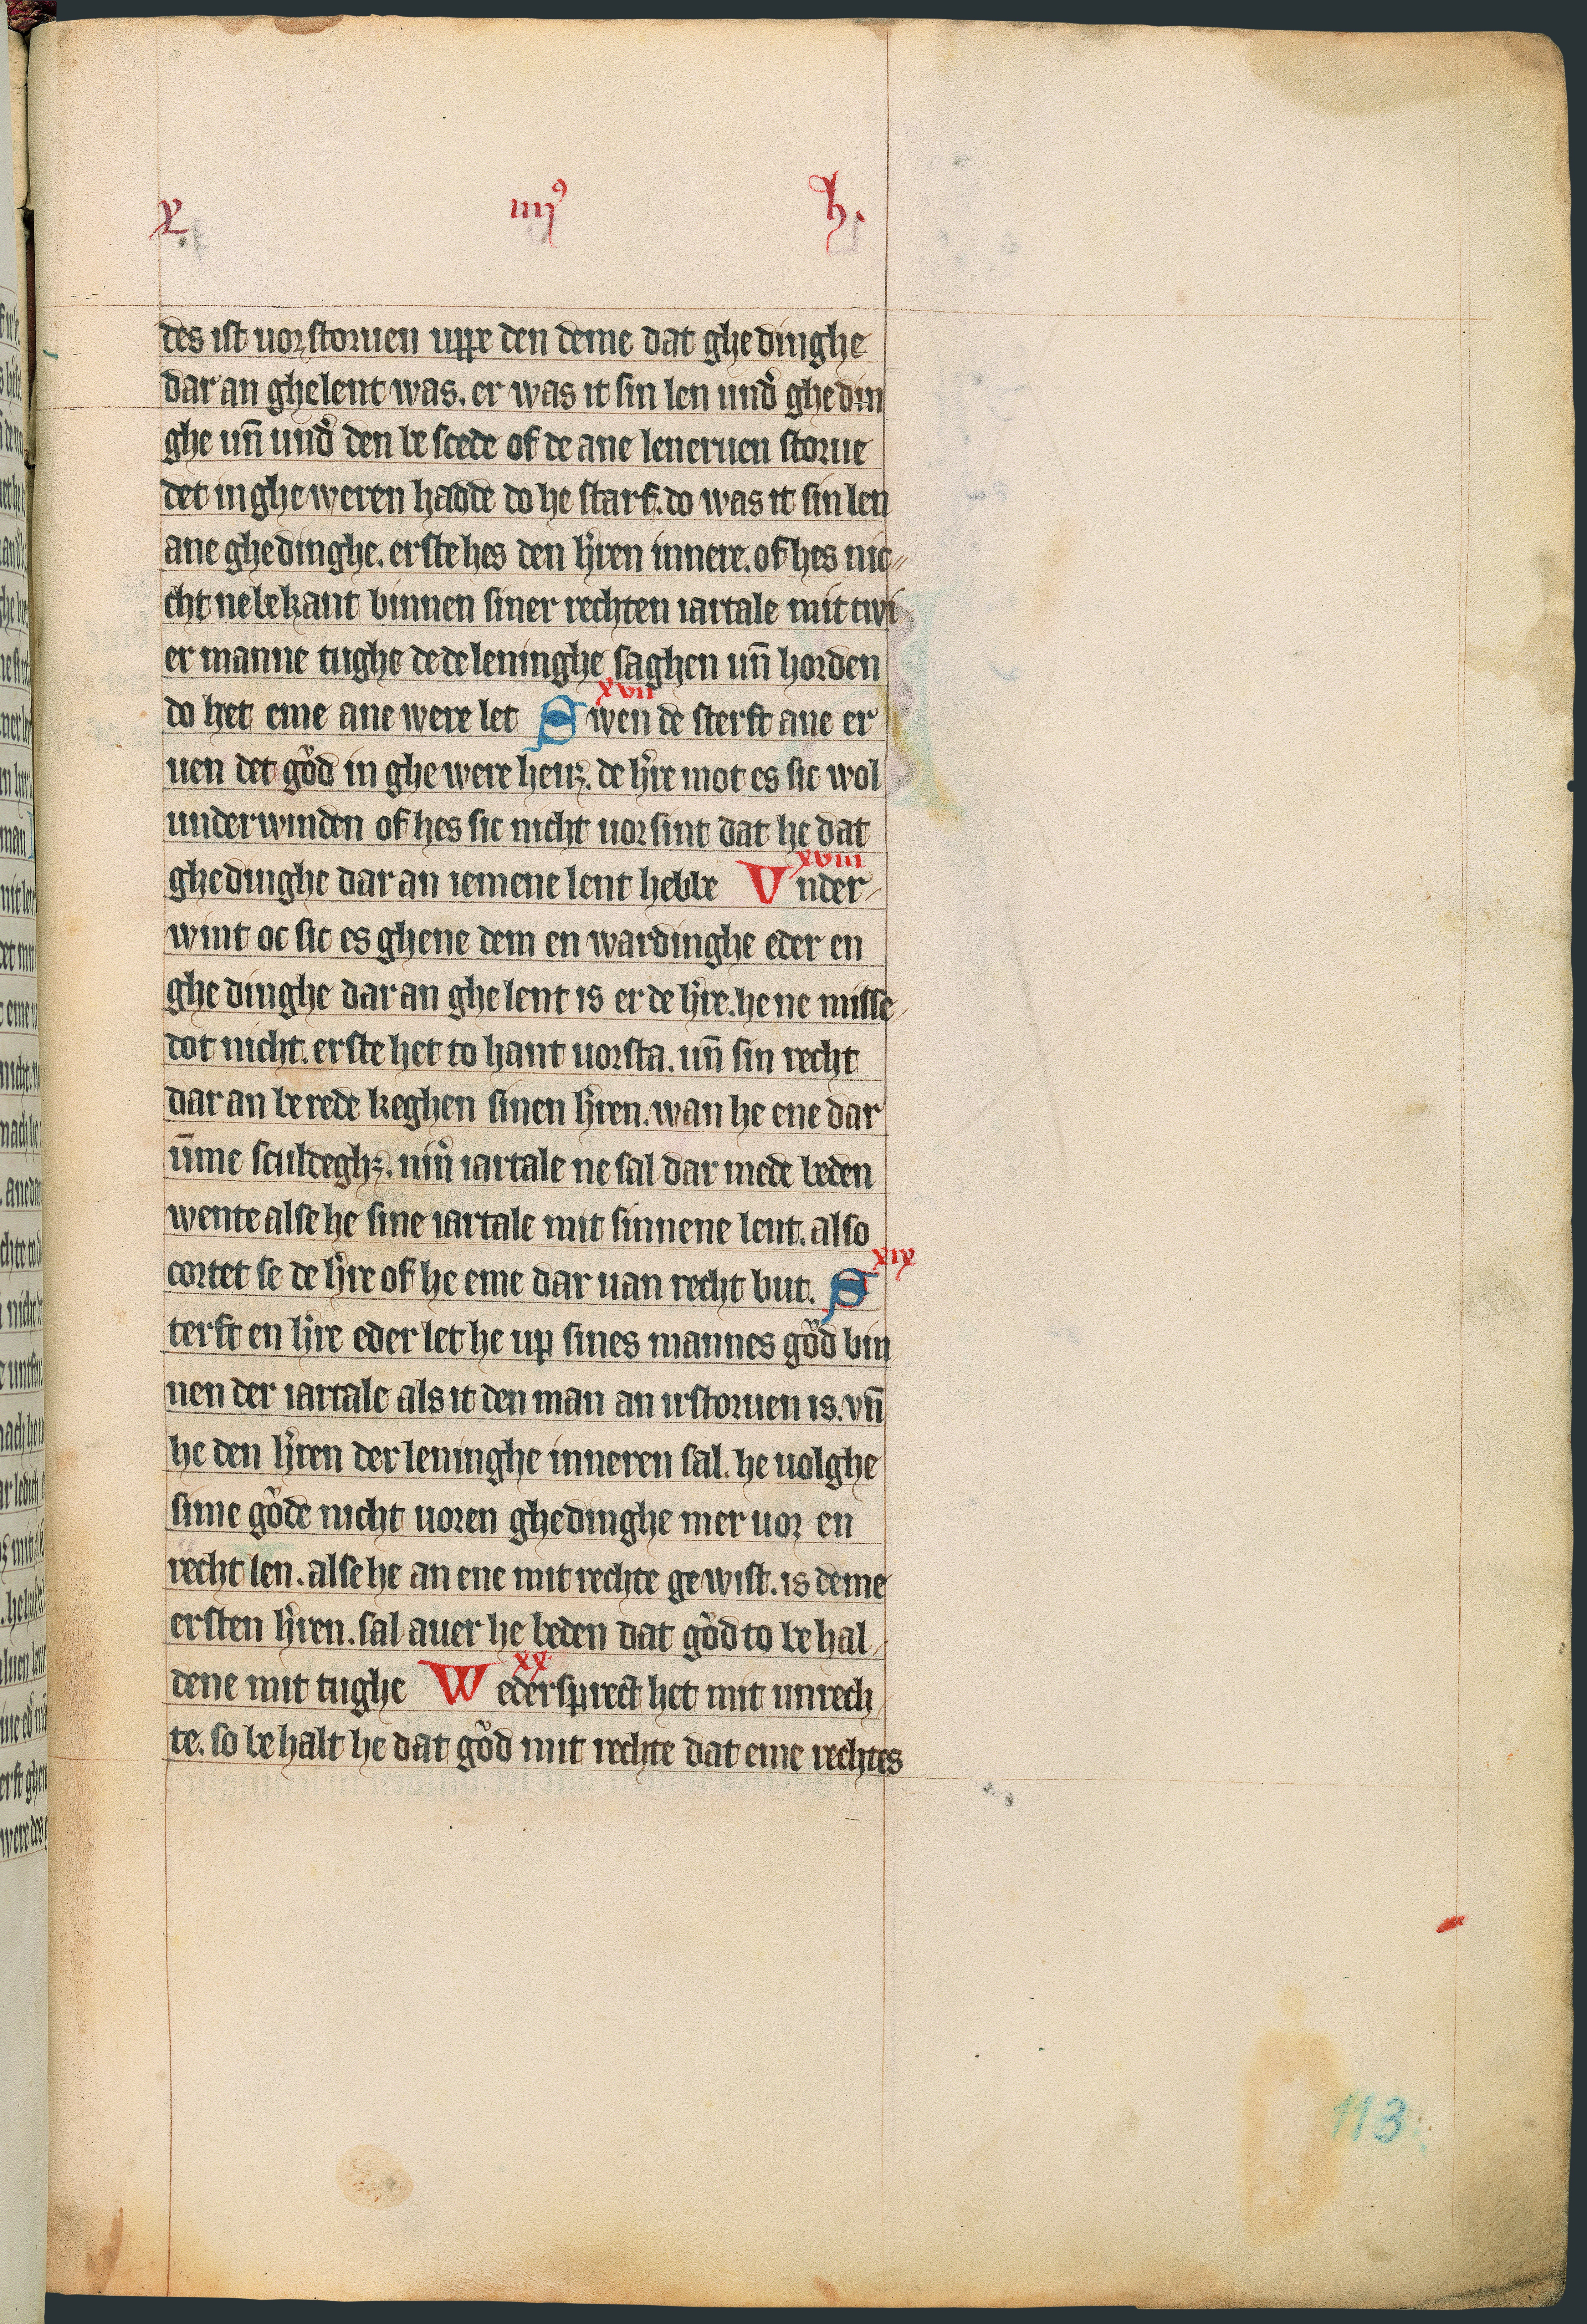 X. iiij⁹ h.
des ist uorstoruen uppe den deme dat ghedinghe
dar an ghelent was. er was it sin len und' ghedin
ghe un̄ und' den bescede of de ane leneruen storue
det in gheweren hadde do he starf. do was it sin len
ane ghedinghe. erste hes den h'ren innere. of hes nic
cht ne bekant binnen siner rechten iartale mit twi
er manne tughe de de leninghe saghen un̄ horden
do het eme ane were let xvii Swen de sterft ane er
uen det gůd in ghewere heuꝫ. de h're mot es sic wol
underwinden of hes sic nicht uorsint dat he dat
ghedinghe dar an iemene lent hebbe xviii Vnder
wint oc sic es ghene dem en wardinghe eder en
ghedinghe dar an ghelent is er de h're. he ne misse
dot nicht. erste het to hant uorsta. un̄ sin recht
dar an berede keghen sinen h'ren. wan he ene dar
ūme sculdeghꝫ. nin̄ iartale ne sal dar mede beden
wente alse he sine iartale mit sinnene lent. also
cortet se de h're of he eme dar uan recht but. xix S
terft en h're eder let he up sines mannes gůd bin
nen der iartale als it den man an irstoruen is. vn̄
he den h'ren der leninghe inneren sal. he uolghe
sime gůde nicht uoren ghedinghe mer uor en
recht len. alse he an ene mit rechte gewist. is deme
ersten h'ren. sal auer he beden dat gůd to behal
dene mit tughe xx Wedersprect het mit unrech
te. so behalt he dat gůd mit rechte dat eme rechtes
113